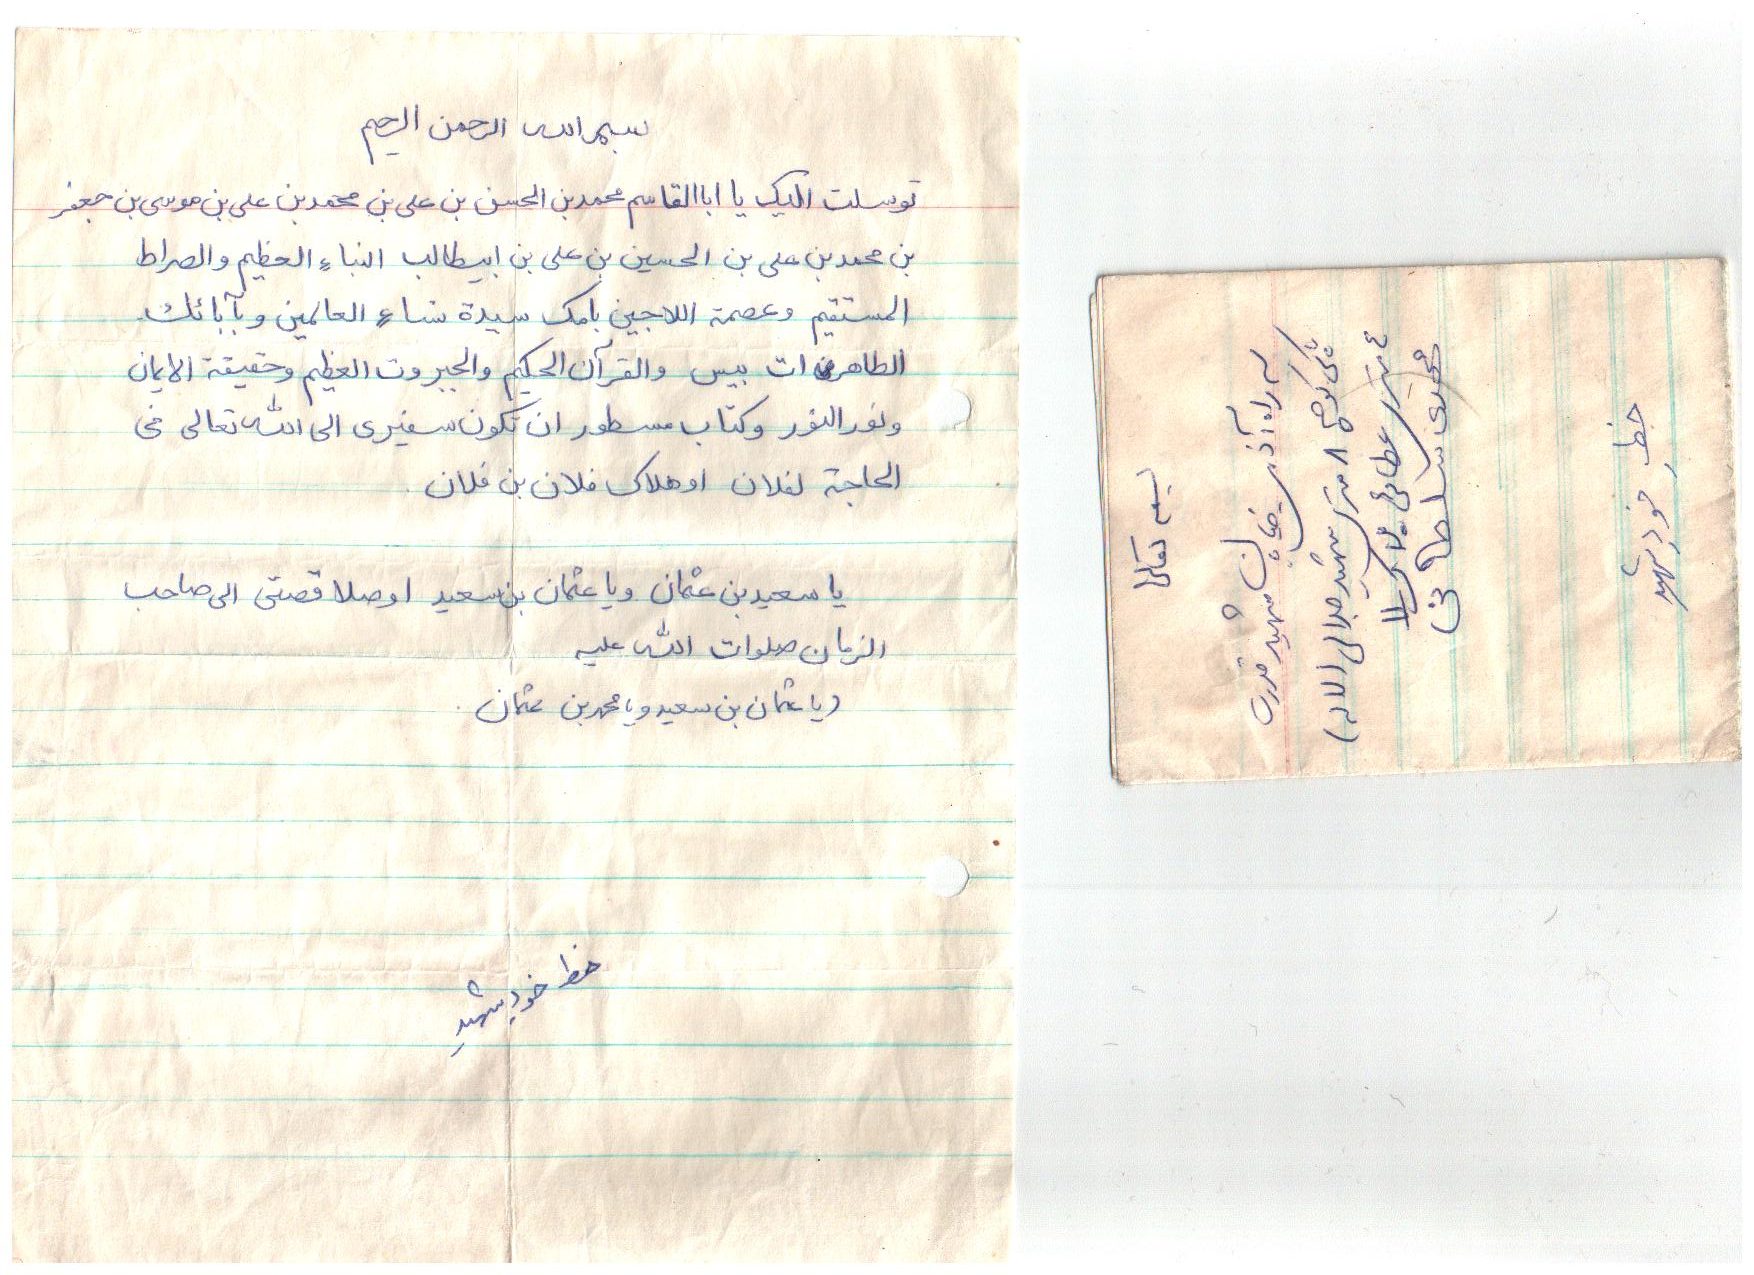 بسم الله الرحمن الرحیم
توسلت الیک یا ابا القاسم محمد بن الحسن بن علی بن محمد بن علی بن موسی بن جعفر
بن محمد بن علی بن الحسین بن علی بن ابیطالب النباء العظیم والصراط
المستقیم و عصمة اللاجین بامک سیدة نساء العالمین و بآبائک
الطاهرات بیس والقرآن الحکیم والجبروت العظیم وحقیقة الایمان
ونور النور وکتاب مسطور ان تکون سفیری الی الله تعالی فی
الحاجة لفلان اوهلاک فلان بن فلان.
یا سعید بن عثمان ویا عثمان بن سعید اوصلا قصتی الی صاحب
الزمان صلوات الله علیه
(یا عثمان بن سعید و یا محمد بن عثمان.
خط خود شهید
بسمه تعالی
سه راه آذری خیابان شهید قدرت
۸ متری شهید جلالی (لاله)
عطائی پلاک
خط خود شهید